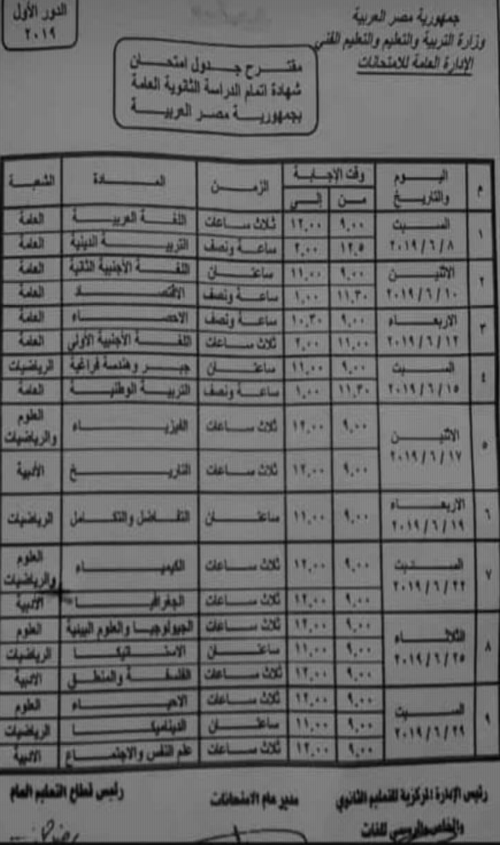 جمهورية مصر العربية
وزارة التربية والتعليم والتعليم الفني
الإدارة العامة للامتحانات
الدور الأول
٢٠١٩
مقترح جدول امتحان
شهادة اتمام الدراسة الثانوية العامة
بجمهورية مصر العربية
م اليوم والتاريخ وقت الإجابة من إلى الزمن المادة الشعبة
١ السبت ٢٠١٩/٦/٨ ٩,٠٠ ١٢,٠٠ ثلاث ساعات اللغة العربية العامة
١٢,٥ ٢,٠٠ ساعة ونصف التربية الدينية العامة
٢ الاثنين ٢٠١٩/٦/١٠ ٩,٠٠ ١١,٠٠ ساعتان اللغة الأجنبية الثانية العامة
١١,٣٠ ١,٠٠ ساعة ونصف الاقتصاد العامة
٣ الاربعاء ٢٠١٩/٦/١٢ ٩,٠٠ ١٠,٣٠ ساعة ونصف الاحصاء العامة
١١,٠٠ ٢,٠٠ ثلاث ساعات اللغة الأجنبية الأولي العامة
٤ السبت ٢٠١٩/٦/١٥ ٩,٠٠ ١١,٠٠ ساعتان جبر وهندسة فراغية الرياضيات
١١,٣٠ ١,٠٠ ساعة ونصف التربية الوطنية العامة
٥ الاثنين ٢٠١٩/٦/١٧ ٩,٠٠ ١٢,٠٠ ثلاث ساعات الفيزياء العلوم والرياضيات
٩,٠٠ ١٢,٠٠ ثلاث ساعات التاريخ الأدبية
٦ الاربعاء ٢٠١٩/٦/١٩ ٩,٠٠ ١١,٠٠ ساعتان التفاضل والتكامل الرياضيات
٧ السبت ٢٠١٩/٦/٢٢ ٩,٠٠ ١٢,٠٠ ثلاث ساعات الكيمياء العلوم والرياضيات
٩,٠٠ ١٢,٠٠ ثلاث ساعات الجغرافيا الأدبية
٨ الثلاثاء ٢٠١٩/٦/٢٥ ٩,٠٠ ١٢,٠٠ ثلاث ساعات الجيولوجيا والعلوم البيئية العلوم
٩,٠٠ ١١,٠٠ ساعتان الاستاتيكا الرياضيات
٩,٠٠ ١٢,٠٠ ثلاث ساعات الفلسفة والمنطق الادبية
٩ السبت ٢٠١٩/٦/٢٩ ٩,٠٠ ١٢,٠٠ ثلاث ساعات الاحياء العلوم
٩,٠٠ ١١,٠٠ ساعتان الديناميكا الرياضيات
٩,٠٠ ١٢,٠٠ ثلاث ساعات علم النفس والاجتماع الادبية
رئيس الإدارة المركزية للتعليم الثانوي
مدير عام الامتحانات
رئيس قطاع التعليم العام